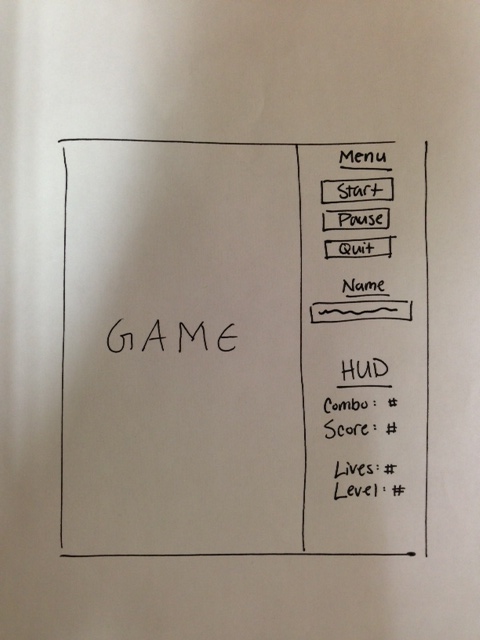 GAME
Menu
Start
Pause
Quit
Name
HUD
Combo: #
Score: #
Lives: #
Level: #